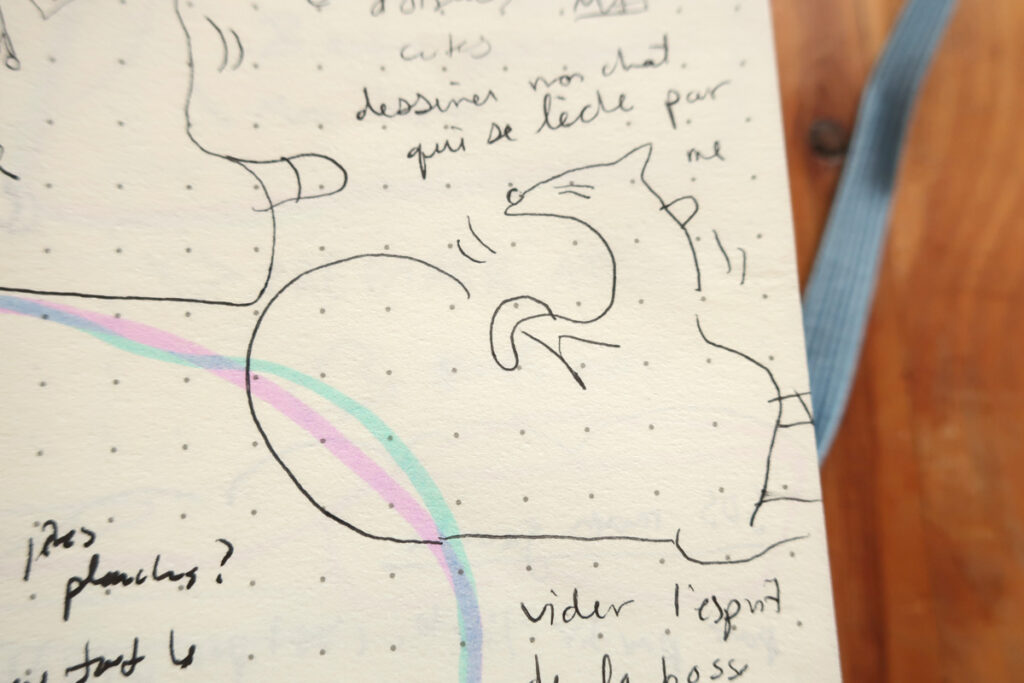 cutes
dessiner mon chat
qui se lèche par
me
planches ?
tout le
vider l'esprit
de la boss